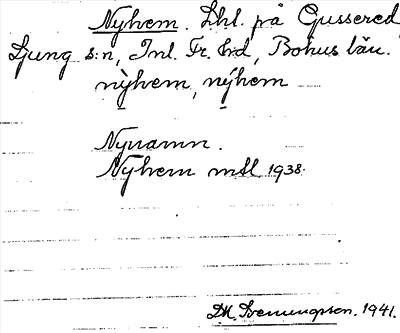 Nyhem. Lhl. på Gussered
Ljung s:n, Inl. Fr. hd, Bohus län.
nỳhem, nýhem
Nynamn.
Nyhem mtl 1938.
D.M. Svenungsson. 1941.